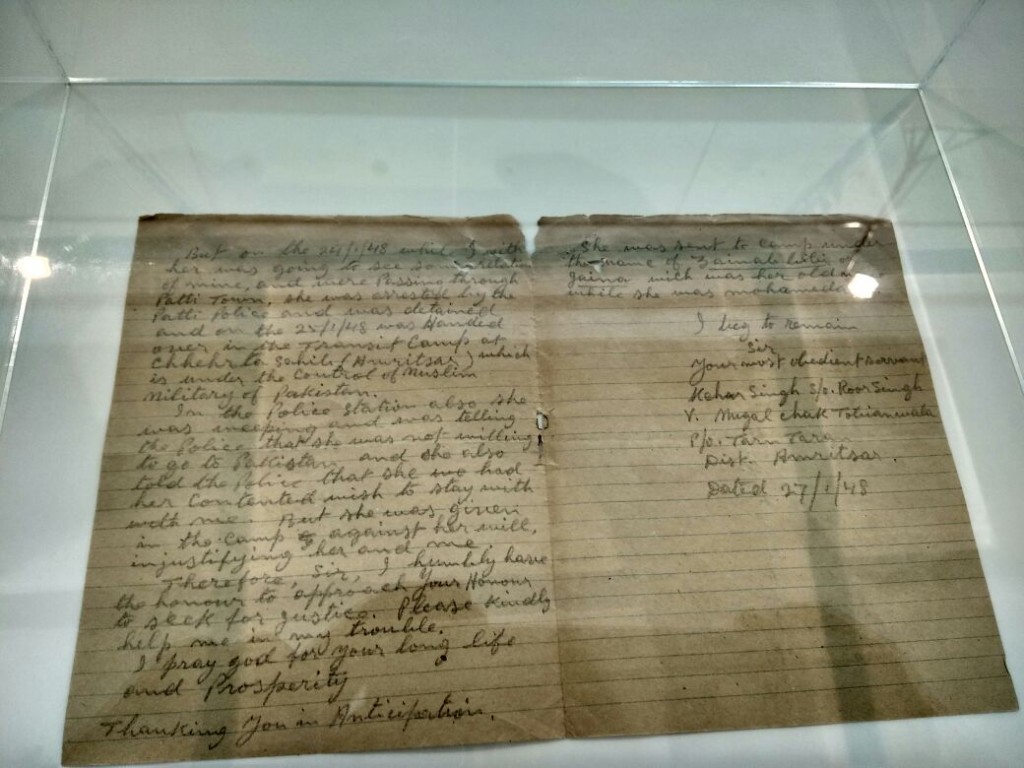 But on the 24/1/48 whil I with
her was going to see som
of mine, and were Passing through
Patti Town, she was arrested by the
Patti Police and was detained
and on the 25/1/48 was Handed
over in the Transit Camp at
Chheharta Sahib (Amritsar) which
is under the Control of Muslim
Military of Pakistan.
In the Police Station also she
was weeping and was telling
the Police that she was not willing
to go to Pakistan and she also
told the Police that she had
her Contented wish to stay with
with me. But she was given
in the camp against her will,
injustifying her and me
Therefore, Sir, I humbly have
the honour to approach your Honour
to seek for justice. Please kindly
help me in my trouble.
I pray god for your long life
and Prosperity
Thanking You in Anticipation.
She was sent to camp under
the name of Zainab bibi or
Jaina wich was her old
while she was mohamedan
I beg to remain
Sir
Your most obedient Servant
Kehar Singh s/o. Roor Singh
V. Mugal chak Totianwala
P/o. Tarn Taran
Disk. Amritsar.
Dated 27/1/48